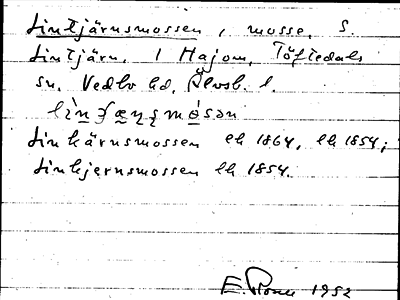 Lintjärnsmossen, mosse, S.
Lintjärn. I Hajom, Töftedals
sn, Vedbo hd, Älvsb. l.
Linkärnsmossen ek 1864, ek 1854;
Linkjernsmossen ek 1854.
1952